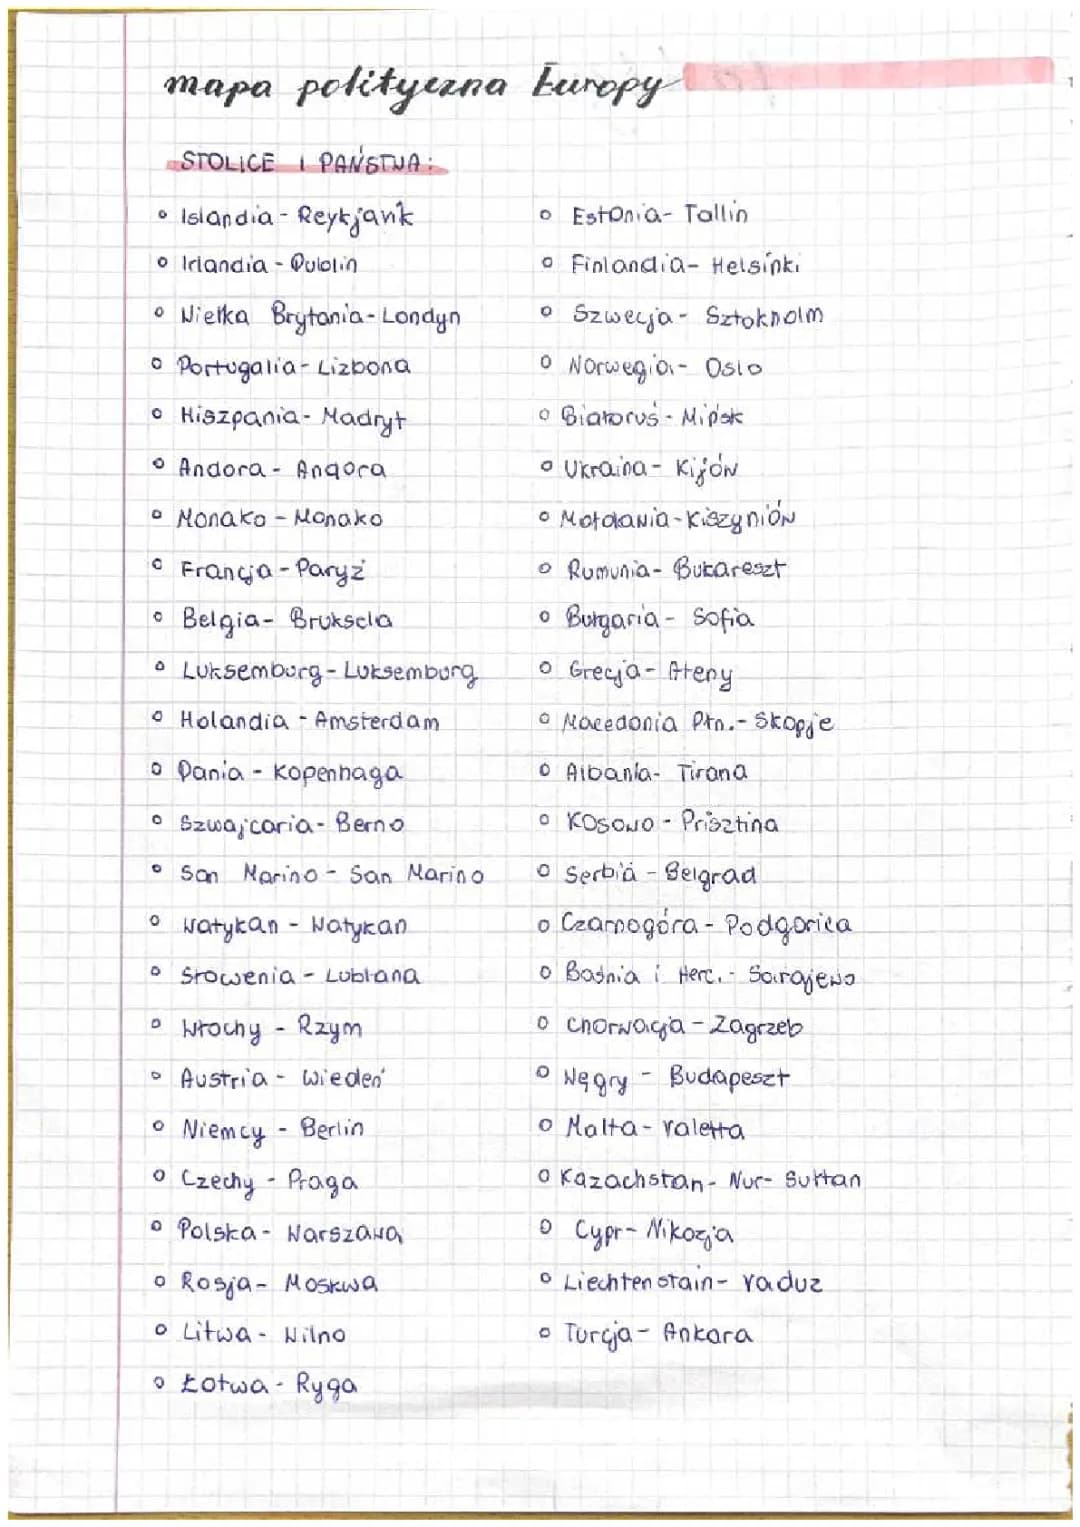 mapa polityczna Europy
STOLICE I PAŃSTWA:
• Islandia - Reykjavik
• Irlandia - Dublin
• Wielka Brytania - Londyn
• Portugalia - Lizbona
• Hiszpania - Madryt
• Andora - Andora
• Monako - Monako
• Francja - Paryż
• Belgia - Bruksela
• Luksemburg - Luksemburg
• Holandia - Amsterdam
• Dania - Kopenhaga
• Szwajcaria - Berno
• San Marino - San Marino
• Watykan - Watykan
• Słowenia - Lublana
• Włochy - Rzym
• Austria - Wiedeń
• Niemcy - Berlin
• Czechy - Praga
• Polska - Warszawa
• Rosja - Moskwa
• Litwa - Wilno
• Łotwa - Ryga
• Estonia - Tallin
• Finlandia - Helsinki
• Szwecja - Sztokholm
• Norwegia - Oslo
• Białoruś - Mińsk
• Ukraina - Kijów
• Mołdawia - Kiszyniów
• Rumunia - Bukareszt
• Bułgaria - Sofia
• Grecja - Ateny
• Macedonia Płn. - Skopje
• Albania - Tirana
• Kosowo - Prisztina
• Serbia - Belgrad
• Czarnogóra - Podgorica
• Bośnia i Herc. - Sarajewo
• Chorwacja - Zagrzeb
• Węgry - Budapeszt
• Malta - Valetta
• Kazachstan - Nur-Sułtan
• Cypr - Nikozja
• Liechtenstain - Vaduz
• Turcja - Ankara